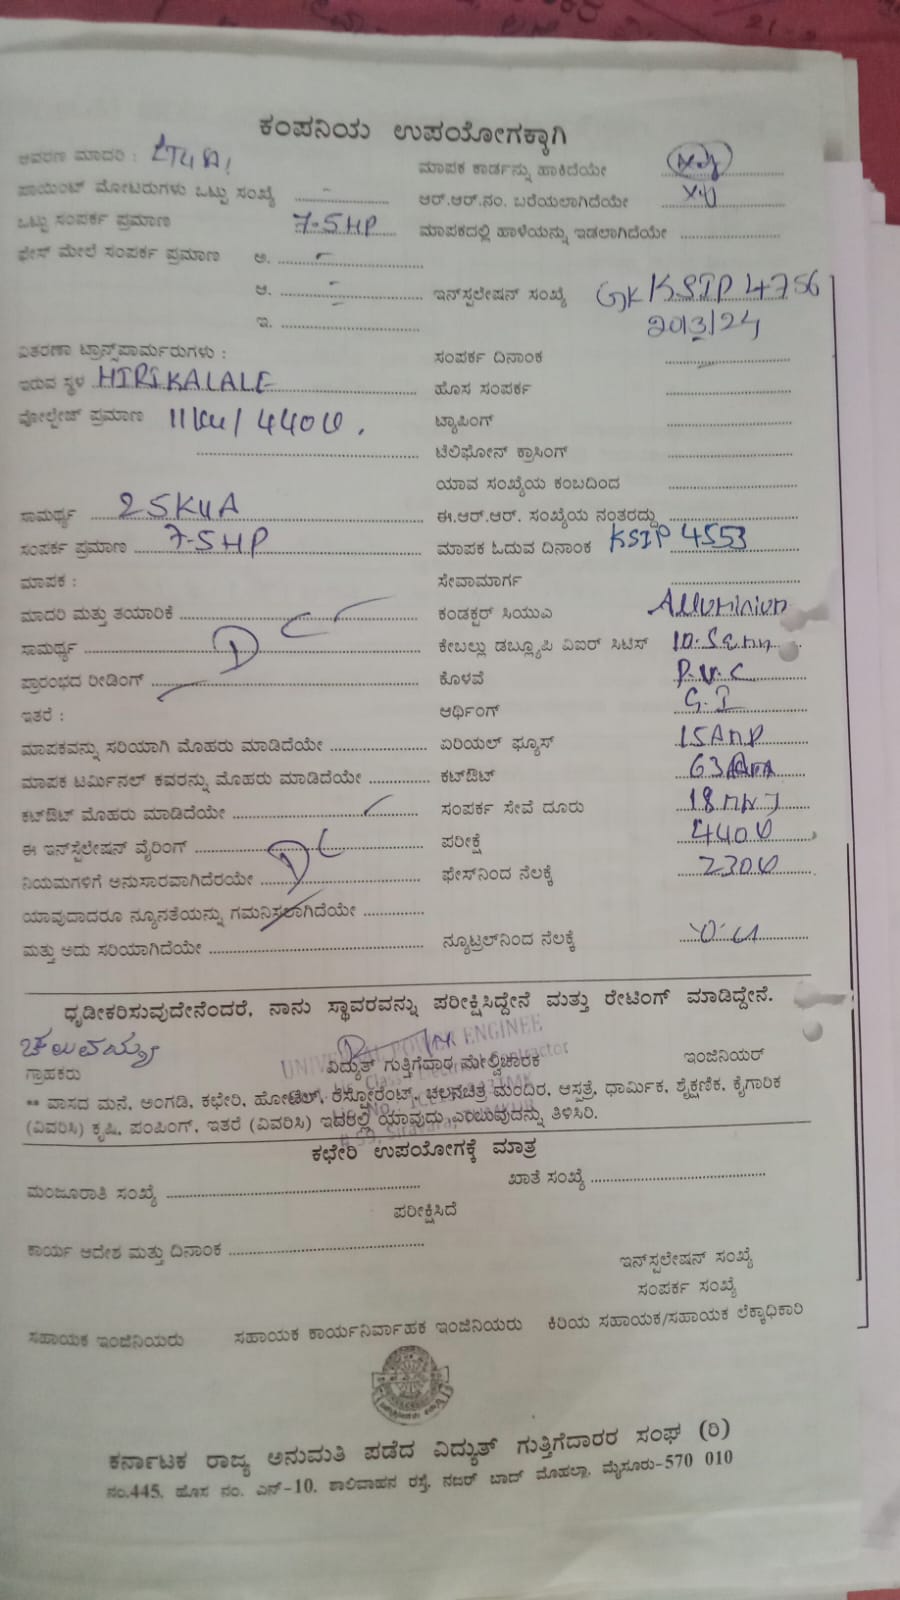 ಕಂಪನಿಯ ಉಪಯೋಗಕ್ಕಾಗಿ
ಆವರಣ ಮಾದರಿ :
ಮಾಪಕ ಕಾರ್ಡನ್ನು ಹಾಕಿದೆಯೇ
ಪಾಯಿಂಟ್ ಮೋಟರುಗಳು ಒಟ್ಟು ಸಂಖ್ಯೆ -
ಆರ್.ಆರ್.ನಂ. ಬರೆಯಲಾಗಿದೆಯೇ
ಒಟ್ಟು ಸಂಪರ್ಕ ಪ್ರಮಾಣ 7-5HP
ಮಾಪಕದಲ್ಲಿ ಹಾಳೆಯನ್ನು ಇಡಲಾಗಿದೆಯೇ
ಫೇಸ್ ಮೇಲೆ ಸಂಪರ್ಕ ಪ್ರಮಾಣ ಅ.
ಆ. ಇನ್‌ಸ್ಪಲೇಷನ್ ಸಂಖ್ಯೆ GKKSIP 4756
ಇ. 2013/24
ವಿತರಣಾ ಟ್ರಾನ್ಸ್‌ಫಾರ್ಮರುಗಳು :
ಸಂಪರ್ಕ ದಿನಾಂಕ
ಇರುವ ಸ್ಥಳ HIRIKALALE
ಹೊಸ ಸಂಪರ್ಕ
ವೋಲ್ಟೇಜ್ ಪ್ರಮಾಣ 11kv/440V.
ಟ್ಯಾಪಿಂಗ್
ಟೆಲಿಫೋನ್ ಕ್ರಾಸಿಂಗ್
ಯಾವ ಸಂಖ್ಯೆಯ ಕಂಬದಿಂದ
ಸಾಮರ್ಥ್ಯ 25KVA
ಈ.ಆರ್.ಆರ್. ಸಂಖ್ಯೆಯ ನಂತರದ್ದು
ಸಂಪರ್ಕ ಪ್ರಮಾಣ 7-5HP
ಮಾಪಕ ಓದುವ ದಿನಾಂಕ KSIP 4553
ಮಾಪಕ :
ಸೇವಾಮಾರ್ಗ
ಮಾದರಿ ಮತ್ತು ತಯಾರಿಕೆ
ಕಂಡಕ್ಟರ್ ಸಿಯುಎ Alluminium
ಸಾಮರ್ಥ್ಯ
ಕೇಬಲ್ಲು ಡಬ್ಲ್ಯೂಪಿ ವಿಐರ್ ಸಿಟಿಸ್ 10.Sqmm
ಪ್ರಾರಂಭದ ರೀಡಿಂಗ್
ಕೊಳವೆ P.V.C
ಇತರೆ :
ಆರ್ಥಿಂಗ್ G.I
ಮಾಪಕವನ್ನು ಸರಿಯಾಗಿ ಮೊಹರು ಮಾಡಿದೆಯೇ
ಏರಿಯಲ್ ಫ್ಯೂಸ್ 15AMP
ಮಾಪಕ ಟರ್ಮಿನಲ್ ಕವರನ್ನು ಮೊಹರು ಮಾಡಿದೆಯೇ
ಕಟ್‌ಔಟ್ 63Am
ಕಟ್‌ಔಟ್ ಮೊಹರು ಮಾಡಿದೆಯೇ
ಸಂಪರ್ಕ ಸೇವೆ ದೂರು
ಈ ಇನ್‌ಸ್ಪಲೇಷನ್ ವೈರಿಂಗ್
ಪರೀಕ್ಷೆ 440V
ನಿಯಮಗಳಿಗೆ ಅನುಸಾರವಾಗಿದೆರಯೇ
ಫೇಸ್‌ನಿಂದ ನೆಲಕ್ಕೆ 230V
ಯಾವುದಾದರೂ ನ್ಯೂನತೆಯನ್ನು ಗಮನಿಸಲಾಗಿದೆಯೇ
ಮತ್ತು ಅದು ಸರಿಯಾಗಿದೆಯೇ
ನ್ಯೂಟ್ರಲ್‌ನಿಂದ ನೆಲಕ್ಕೆ
ಧೃಡೀಕರಿಸುವುದೇನೆಂದರೆ, ನಾನು ಸ್ಥಾವರವನ್ನು ಪರೀಕ್ಷಿಸಿದ್ದೇನೆ ಮತ್ತು ರೇಟಿಂಗ್ ಮಾಡಿದ್ದೇನೆ.
ಚಲುವಮ್ಮ
UNIVERSAL POWER ENGINEE
ಗ್ರಾಹಕರು ವಿದ್ಯುತ್ ಗುತ್ತಿಗೆದಾರ ಮೇಲ್ವಿಚಾರಕ ಇಂಜಿನಿಯರ್
** ವಾಸದ ಮನೆ, ಅಂಗಡಿ, ಕಛೇರಿ, ಹೋಟೆಲ್, ರೆಸ್ಟೋರೆಂಟ್, ಚಲನಚಿತ್ರ ಮಂದಿರ, ಆಸ್ಪತ್ರೆ, ಧಾರ್ಮಿಕ, ಶೈಕ್ಷಣಿಕ, ಕೈಗಾರಿಕ
(ವಿವರಿಸಿ) ಕೃಷಿ, ಪಂಪಿಂಗ್, ಇತರೆ (ವಿವರಿಸಿ) ಇದರಲ್ಲಿ ಯಾವುದು ಎಂಬುವುದನ್ನು ತಿಳಿಸಿರಿ.
ಕಛೇರಿ ಉಪಯೋಗಕ್ಕೆ ಮಾತ್ರ
ಮಂಜೂರಾತಿ ಸಂಖ್ಯೆ
ಖಾತೆ ಸಂಖ್ಯೆ
ಪರೀಕ್ಷಿಸಿದೆ
ಕಾರ್ಯ ಆದೇಶ ಮತ್ತು ದಿನಾಂಕ
ಇನ್‌ಸ್ಪಲೇಷನ್ ಸಂಖ್ಯೆ
ಸಂಪರ್ಕ ಸಂಖ್ಯೆ
ಸಹಾಯಕ ಇಂಜಿನಿಯರು ಸಹಾಯಕ ಕಾರ್ಯನಿರ್ವಾಹಕ ಇಂಜಿನಿಯರು ಕಿರಿಯ ಸಹಾಯಕ/ಸಹಾಯಕ ಲೆಕ್ಕಾಧಿಕಾರಿ
ಕರ್ನಾಟಕ ರಾಜ್ಯ ಅನುಮತಿ ಪಡೆದ ವಿದ್ಯುತ್ ಗುತ್ತಿಗೆದಾರರ ಸಂಘ (ರಿ)
ನಂ.445, ಹೊಸ ನಂ. ಎನ್-10, ಶಾಲಿವಾಹನ ರಸ್ತೆ, ನಜರ್ ಬಾದ್ ಮೊಹಲ್ಲಾ, ಮೈಸೂರು-570 010